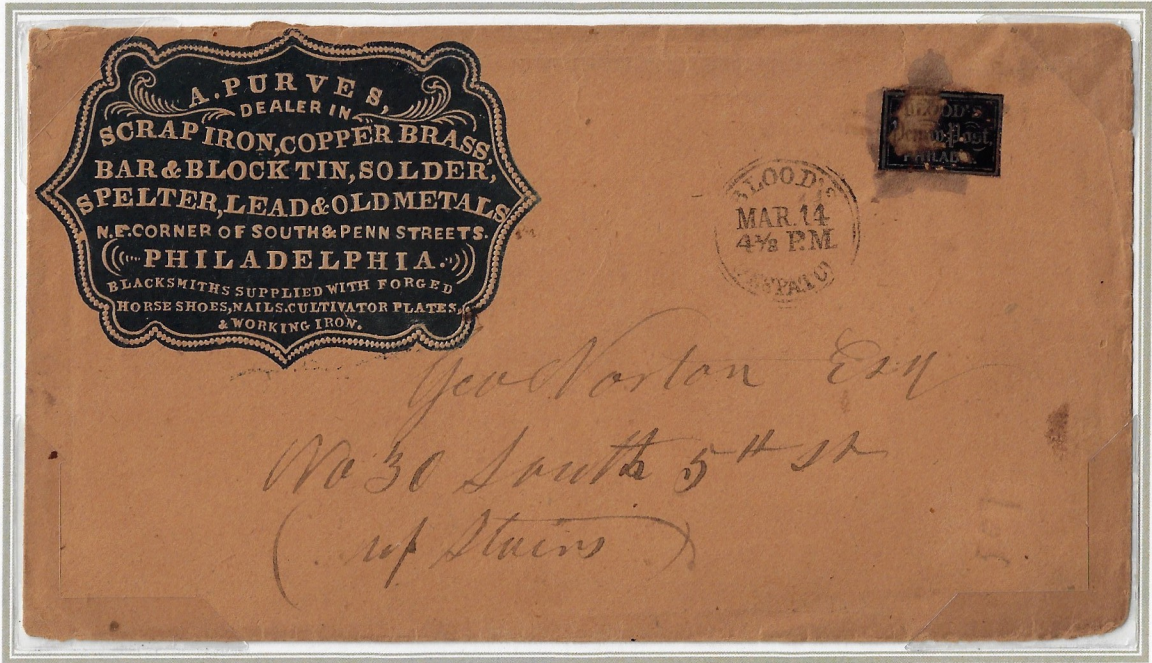 A. PURVES,
DEALER IN
SCRAP IRON, COPPER BRASS,
BAR & BLOCK TIN, SOLDER,
SPELTER, LEAD & OLD METALS
N.E. CORNER OF SOUTH & PENN STREETS.
PHILADELPHIA.
BLACKSMITHS SUPPLIED WITH FORGED
HORSE SHOES, NAILS. CULTIVATOR PLATES,
& WORKING IRON.
BLOOD'S
Penny-Post,
PHILADA
BLOOD'S
MAR. 14
4½ P.M.
DESPATCH
Geo Norton Esq
No 30 South 5th St
(up Stairs)